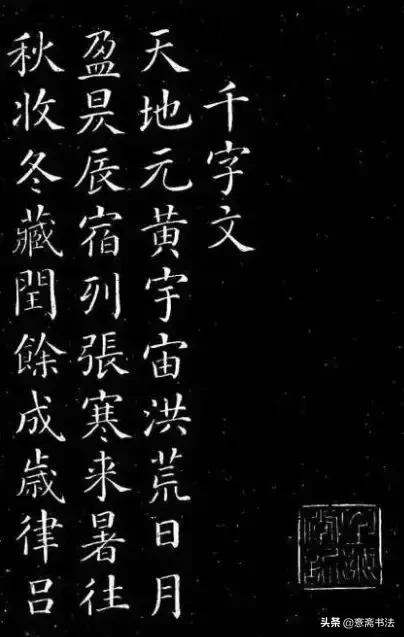 千字文
天地元黄宇宙洪荒日月
盈昃辰宿列張寒来暑往
秋收冬藏閏餘成歲律呂
头条 @意斋书法